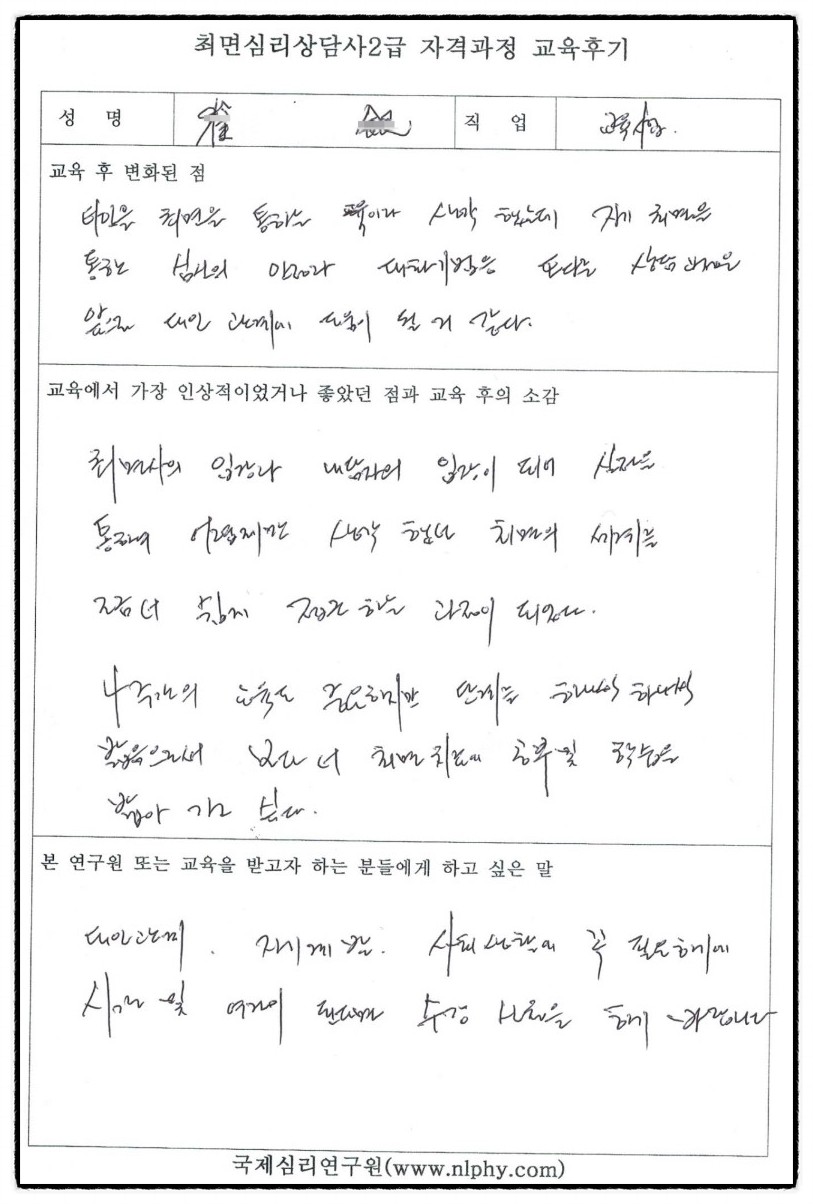 최면심리상담사2급 자격과정 교육후기
성 명 崔 직 업
교육 후 변화된 점
타인을 최면을 통하는 교육이라 생각 했는데 자기 최면을
통한 심사의 안정과 대화기법은 또다른 상담 과정은
앞으로 대인 관계에 도움이 될 거 같다.
교육에서 가장 인상적이었거나 좋았던 점과 교육 후의 소감
최면사의 입장과 내담자의 입장이 되어 실제을
통하여 어렵게만 생각 했던 최면의 세계를
조금 더 쉽게 접근 하는 과정이 되었다.
교육도 중요하지만 단계를 하나씩 하나씩
밟음으로서 보다 더 최면치료에 공부 및 학습을
밟아 가고 싶다.
본 연구원 또는 교육을 받고자 하는 분들에게 하고 싶은 말
대인관계 . 자기계발. 사회생활에 꼭 필요하기에
시간 및 여건이 된다면 수강 신청을 하기 바랍니다
국제심리연구원(www.nlphy.com)